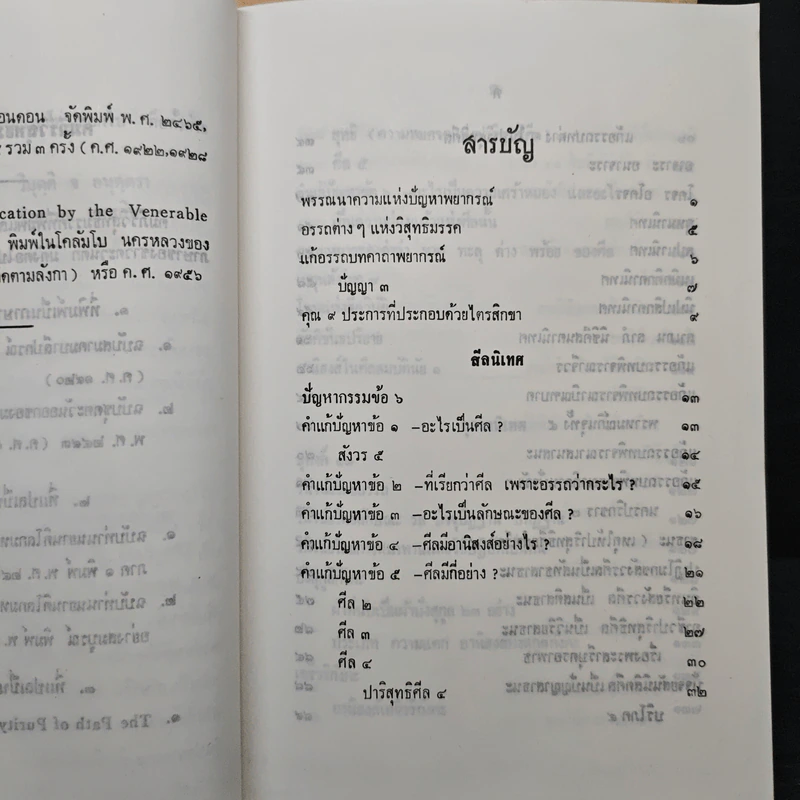 อนดอน จัดพิมพ์ พ.ศ. ๒๔๖๕,
รวม ๓ ครั้ง (ค.ศ. ๑๙๒๒,๑๙๒๘
cation by the Venerable
พิมพ์ในโคลัมโบ นครหลวงของ
คตามลังกา) หรือ ค.ศ. ๑๙๕๖
สารบัญ
พรรณนาความแห่งปัญหาพยากรณ์ ๑
อรรถต่างๆ แห่งวิสุทธิมรรค ๕
แก้อรรถบทคาถาพยากรณ์ ๖
ปัญญา ๓ ๗
คุณ ๙ ประการที่ประกอบด้วยไตรสิกขา ๙
สีลนิเทศ
ปัญหากรรมข้อ ๖ ๑๓
คำแก้ปัญหาข้อ ๑ –อะไรเป็นศีล ? ๑๓
สังวร ๕ ๑๔
คำแก้ปัญหาข้อ ๒ –ที่เรียกว่าศีล เพราะอรรถว่ากระไร ? ๑๕
คำแก้ปัญหาข้อ ๓ –อะไรเป็นลักษณะของศีล ? ๑๖
คำแก้ปัญหาข้อ ๔ –ศีลมีอานิสงส์อย่างไร ? ๑๘
คำแก้ปัญหาข้อ ๕ –ศีลมีกี่อย่าง ? ๒๑
ศีล ๒ ๒๒
ศีล ๓ ๒๗
ศีล ๔ ๓๐
ปาริสุทธิศีล ๔ ๓๒